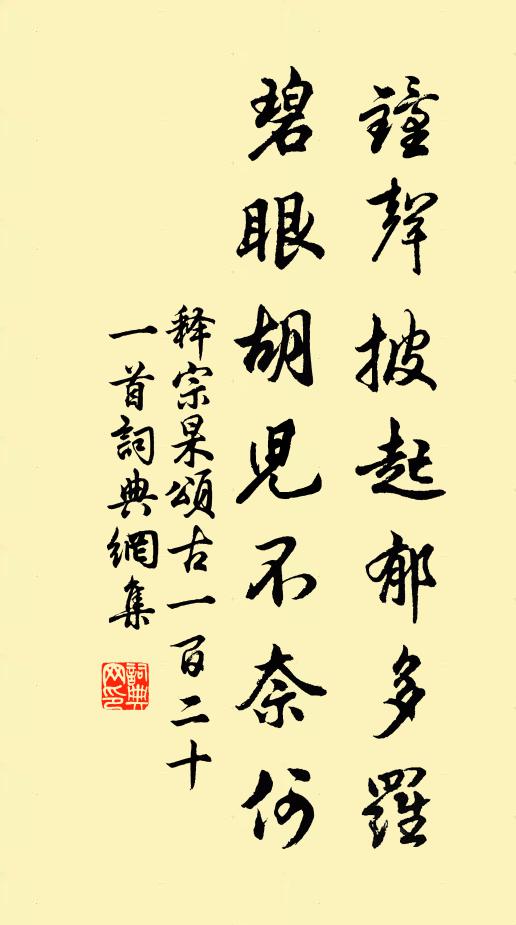 鐘聲披起郁多羅
碧眼胡児不奈何
释宗杲頌古一百二十
一首詞典網集
詞典网印